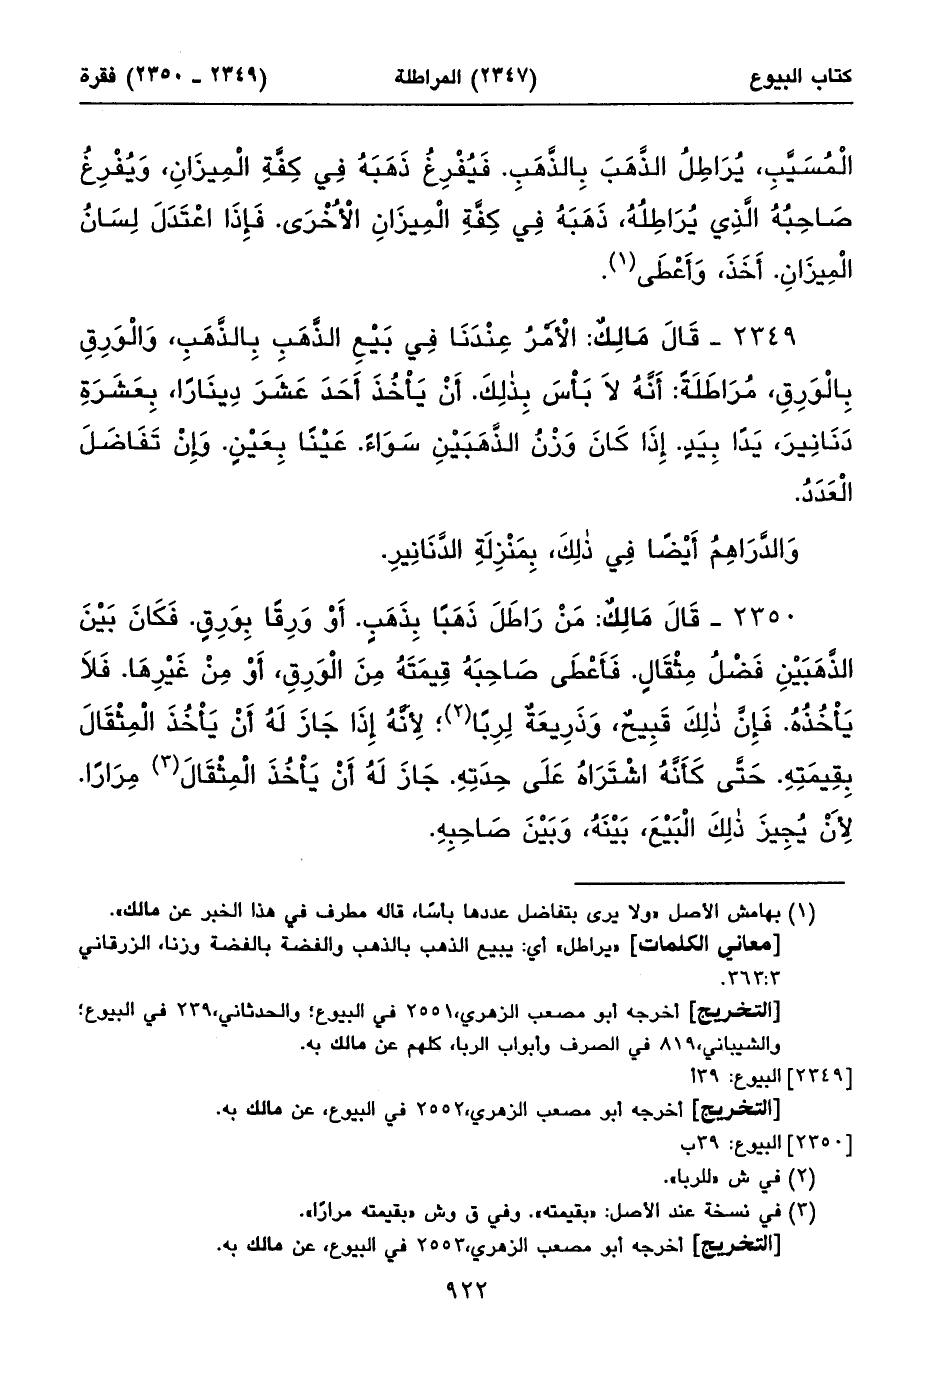 كتاب البيوع (٢٣٤٧) المراطلة (٢٣٤٩ - ٢٣٥٠) فقرة
الْمُسَيَّبِ، يُرَاطِلُ الذَّهَبَ بِالذَّهَبِ. فَيُفْرِغُ ذَهَبَهُ فِي كِفَّةِ الْمِيزَانِ، وَيُفْرِغُ
صَاحِبُهُ الَّذِي يُرَاطِلُهُ، ذَهَبَهُ فِي كِفَّةِ الْمِيزَانِ الْأُخْرَى. فَإِذَا اعْتَدَلَ لِسَانُ
الْمِيزَانِ. أَخَذَ، وَأَعْطَى(١).
٢٣٤٩ - قَالَ مَالِكٌ: الْأَمْرُ عِنْدَنَا فِي بَيْعِ الذَّهَبِ بِالذَّهَبِ، وَالْوَرِقِ
بِالْوَرِقِ، مُرَاطَلَةً: أَنَّهُ لاَ بَأْسَ بِذٰلِكَ. أَنْ يَأْخُذَ أَحَدَ عَشَرَ دِينَارًا، بِعَشَرَةِ
دَنَانِيرَ، يَدًا بِيَدٍ. إِذَا كَانَ وَزْنُ الذَّهَبَيْنِ سَوَاءً. عَيْنًا بِعَيْنٍ. وَإِنْ تَفَاضَلَ
الْعَدَدُ.
وَالدَّرَاهِمُ أَيْضًا فِي ذٰلِكَ، بِمَنْزِلَةِ الدَّنَانِيرِ.
٢٣٥٠ - قَالَ مَالِكٌ: مَنْ رَاطَلَ ذَهَبًا بِذَهَبٍ. أَوْ وَرِقًا بِوَرِقٍ. فَكَانَ بَيْنَ
الذَّهَبَيْنِ فَضْلُ مِثْقَالٍ. فَأَعْطَى صَاحِبَهُ قِيمَتَهُ مِنَ الْوَرِقِ، أَوْ مِنْ غَيْرِهَا. فَلاَ
يَأْخُذُهُ. فَإِنَّ ذٰلِكَ قَبِيحٌ، وَذَرِيعَةٌ لِرِبًا(٢)؛ لِأَنَّهُ إِذَا جَازَ لَهُ أَنْ يَأْخُذَ الْمِثْقَالَ
بِقِيمَتِهِ. حَتَّى كَأَنَّهُ اشْتَرَاهُ عَلَى حِدَتِهِ. جَازَ لَهُ أَنْ يَأْخُذَ الْمِثْقَالَ(٣) مِرَارًا.
لِأَنْ يُجِيزَ ذٰلِكَ الْبَيْعَ، بَيْنَهُ، وَبَيْنَ صَاحِبِهِ.
(١) بهامش الأصل «ولا يرى بتفاضل عددها بأسًا، قاله مطرف في هذا الخبر عن مالك».
[معاني الكلمات] «يراطل» أي: يبيع الذهب بالذهب والفضة بالفضة وزنا، الزرقاني
٣٦٣:٣.
[التخريج] أخرجه أبو مصعب الزهري،٢٥٥١ في البيوع؛ والحدثاني،٢٣٩ في البيوع؛
والشيباني،٨١٩ في الصرف وأبواب الربا، كلهم عن مالك به.
[٢٣٤٩] البيوع: ٣٩أ
[التخريج] أخرجه أبو مصعب الزهري،٢٥٥٢ في البيوع، عن مالك به.
[٢٣٥٠] البيوع: ٣٩ب
(٢) في ش «للربا».
(٣) في نسخة عند الأصل: «بقيمته». وفي ق وش «بقيمته مرارًا».
[التخريج] أخرجه أبو مصعب الزهري،٢٥٥٣ في البيوع، عن مالك به.
٩٢٢